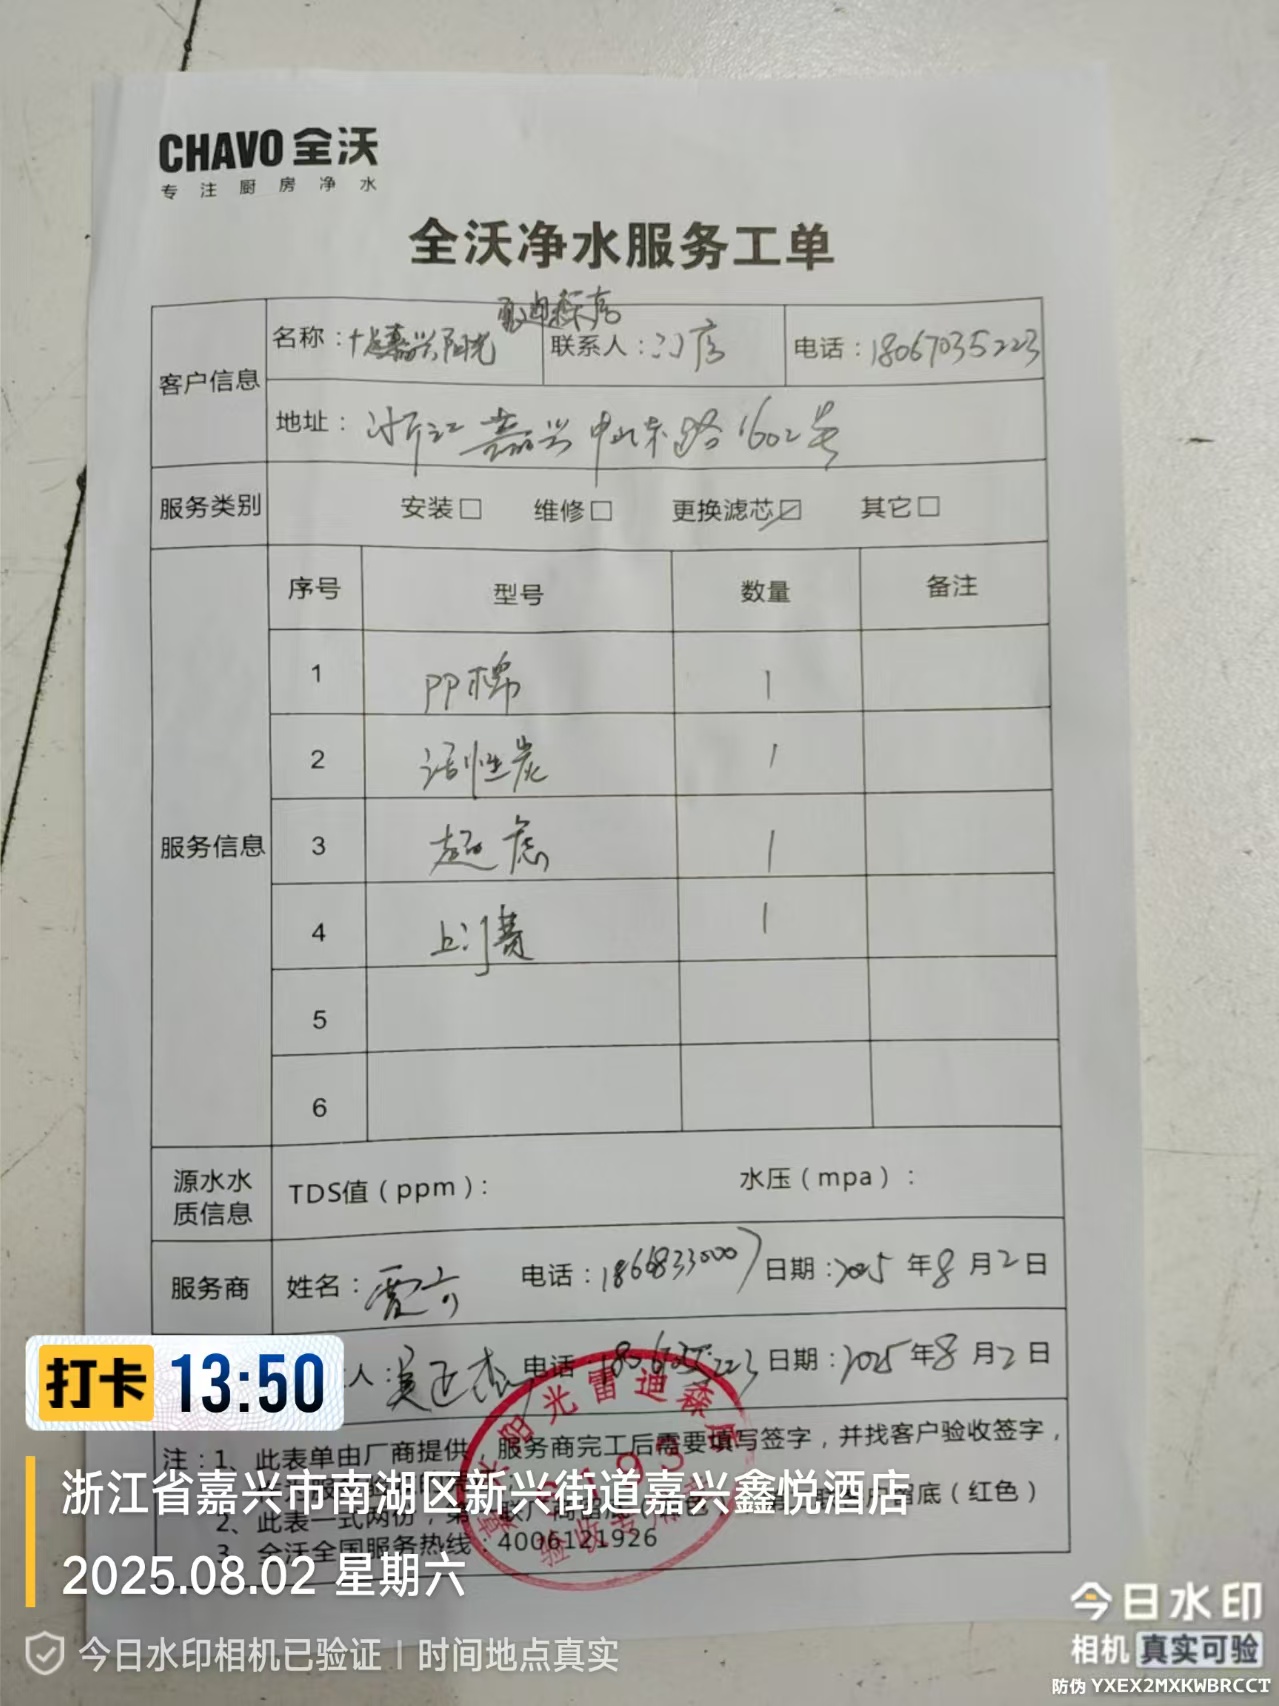 CHAVO 全沃
专注厨房净水
全沃净水服务工单
客户信息 名称： 嘉兴阳光 联系人：门店 电话：18067035223
地址：浙江嘉兴中山东路1602号
服务类别 安装□ 维修□ 更换滤芯☑ 其它□
服务信息 序号 型号 数量 备注
1 PP棉 1
2 活性炭 1
3 超滤 1
4 上门费 1
5
6
源水水质信息 TDS值（ppm）： 水压（mpa）：
服务商 姓名： 电话： 日期：2025年8月2日
人： 电话： 日期：2025年8月2日
注：1、此表单由厂商提供，服务商完工后需要填写签字，并找客户验收签字，
2、此表一式两份，第 留底（红色）
3、全沃全国服务热线：4006121926
阳光雷迪森
验收专用
打卡 13:50
浙江省嘉兴市南湖区新兴街道嘉兴鑫悦酒店
2025.08.02 星期六
今日水印相机已验证 | 时间地点真实
今日水印
相机 真实可验
防伪 YXEX2MXKWBRCCT